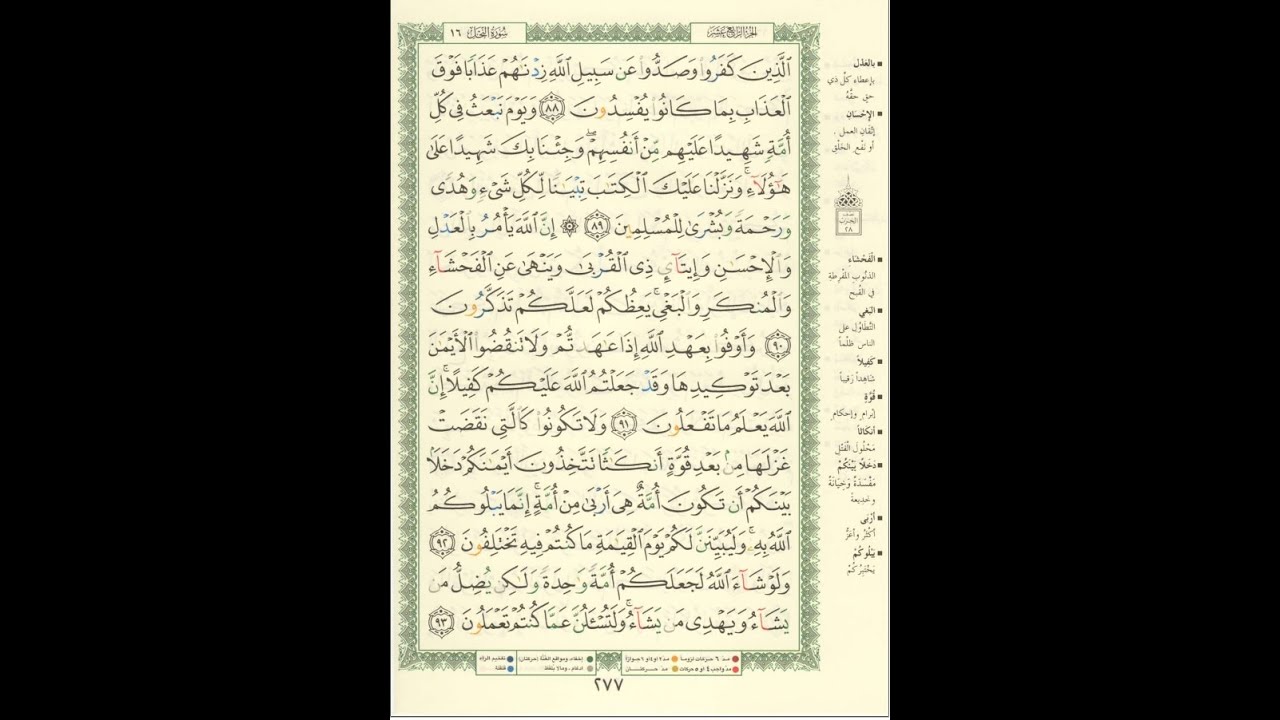 الجزء الرابع عشر
سُورَةُ النَّحْل ١٦
الَّذِينَ كَفَرُوا وَصَدُّوا عَن سَبِيلِ اللَّهِ زِدْنَٰهُمْ عَذَابًا فَوْقَ
الْعَذَابِ بِمَا كَانُوا يُفْسِدُونَ ٨٨ وَيَوْمَ نَبْعَثُ فِي كُلِّ
أُمَّةٍ شَهِيدًا عَلَيْهِم مِّنْ أَنفُسِهِمْ ۖ وَجِئْنَا بِكَ شَهِيدًا عَلَىٰ
هَٰٓؤُلَآءِ ۚ وَنَزَّلْنَا عَلَيْكَ الْكِتَٰبَ تِبْيَٰنًا لِّكُلِّ شَيْءٍ وَهُدًى
وَرَحْمَةً وَبُشْرَىٰ لِلْمُسْلِمِينَ ٨٩ ۞ إِنَّ اللَّهَ يَأْمُرُ بِالْعَدْلِ
وَالْإِحْسَٰنِ وَإِيتَآئِ ذِي الْقُرْبَىٰ وَيَنْهَىٰ عَنِ الْفَحْشَآءِ
وَالْمُنكَرِ وَالْبَغْيِ ۚ يَعِظُكُمْ لَعَلَّكُمْ تَذَكَّرُونَ
٩٠ وَأَوْفُوا بِعَهْدِ اللَّهِ إِذَا عَٰهَدتُّمْ وَلَا تَنقُضُوا الْأَيْمَٰنَ
بَعْدَ تَوْكِيدِهَا وَقَدْ جَعَلْتُمُ اللَّهَ عَلَيْكُمْ كَفِيلًا ۚ إِنَّ
اللَّهَ يَعْلَمُ مَا تَفْعَلُونَ ٩١ وَلَا تَكُونُوا كَالَّتِي نَقَضَتْ
غَزْلَهَا مِنۢ بَعْدِ قُوَّةٍ أَنكَٰثًا تَتَّخِذُونَ أَيْمَٰنَكُمْ دَخَلًۢا
بَيْنَكُمْ أَن تَكُونَ أُمَّةٌ هِيَ أَرْبَىٰ مِنْ أُمَّةٍ ۚ إِنَّمَا يَبْلُوكُمُ
اللَّهُ بِهِ ۚ وَلَيُبَيِّنَنَّ لَكُمْ يَوْمَ الْقِيَٰمَةِ مَا كُنتُمْ فِيهِ تَخْتَلِفُونَ ٩٢
وَلَوْ شَآءَ اللَّهُ لَجَعَلَكُمْ أُمَّةً وَٰحِدَةً وَلَٰكِن يُضِلُّ مَن
يَشَآءُ وَيَهْدِي مَن يَشَآءُ ۚ وَلَتُسْـَٔلُنَّ عَمَّا كُنتُمْ تَعْمَلُونَ ٩٣
بالعَدْل
بإعطاء كلّ ذي
حق حقَّهُ
الإحْسَانِ
إتْقَانِ العمل
أو نَفْعِ الخَلْقِ
نصف
الحزب
٢٨
الْفَحْشَاءِ
الذنوبِ المُفْرِطة
في القُبح
البَغْي
التَّطَاوُل على
الناس ظُلْماً
كَفِيلاً
شَاهِداً رَقيباً
قُوَّة
إبْرام وإحكام
أنكاثاً
مَحْلُولَ الْفَتْلِ
دَخَلًا بَيْنَكُمْ
مَفْسَدَةً وَخِيَانَةً
وخديعةً
أرْبَى
أكْثَرُ وأعَزُّ
يَبْلُوكُمْ
يَخْتَبِرُكُمْ
مدّ ٦ حركات لزوماً
مدّ ٢ او ٤ او ٦ جوازاً
مدّ واجب ٤ او ٥ حركات
مدّ حركتان
إخفاء، ومواقع الغُنَّة (حركتان)
ادغام، وما لا يُلفَظ
تفخيم الراء
قلقلة
٢٧٧